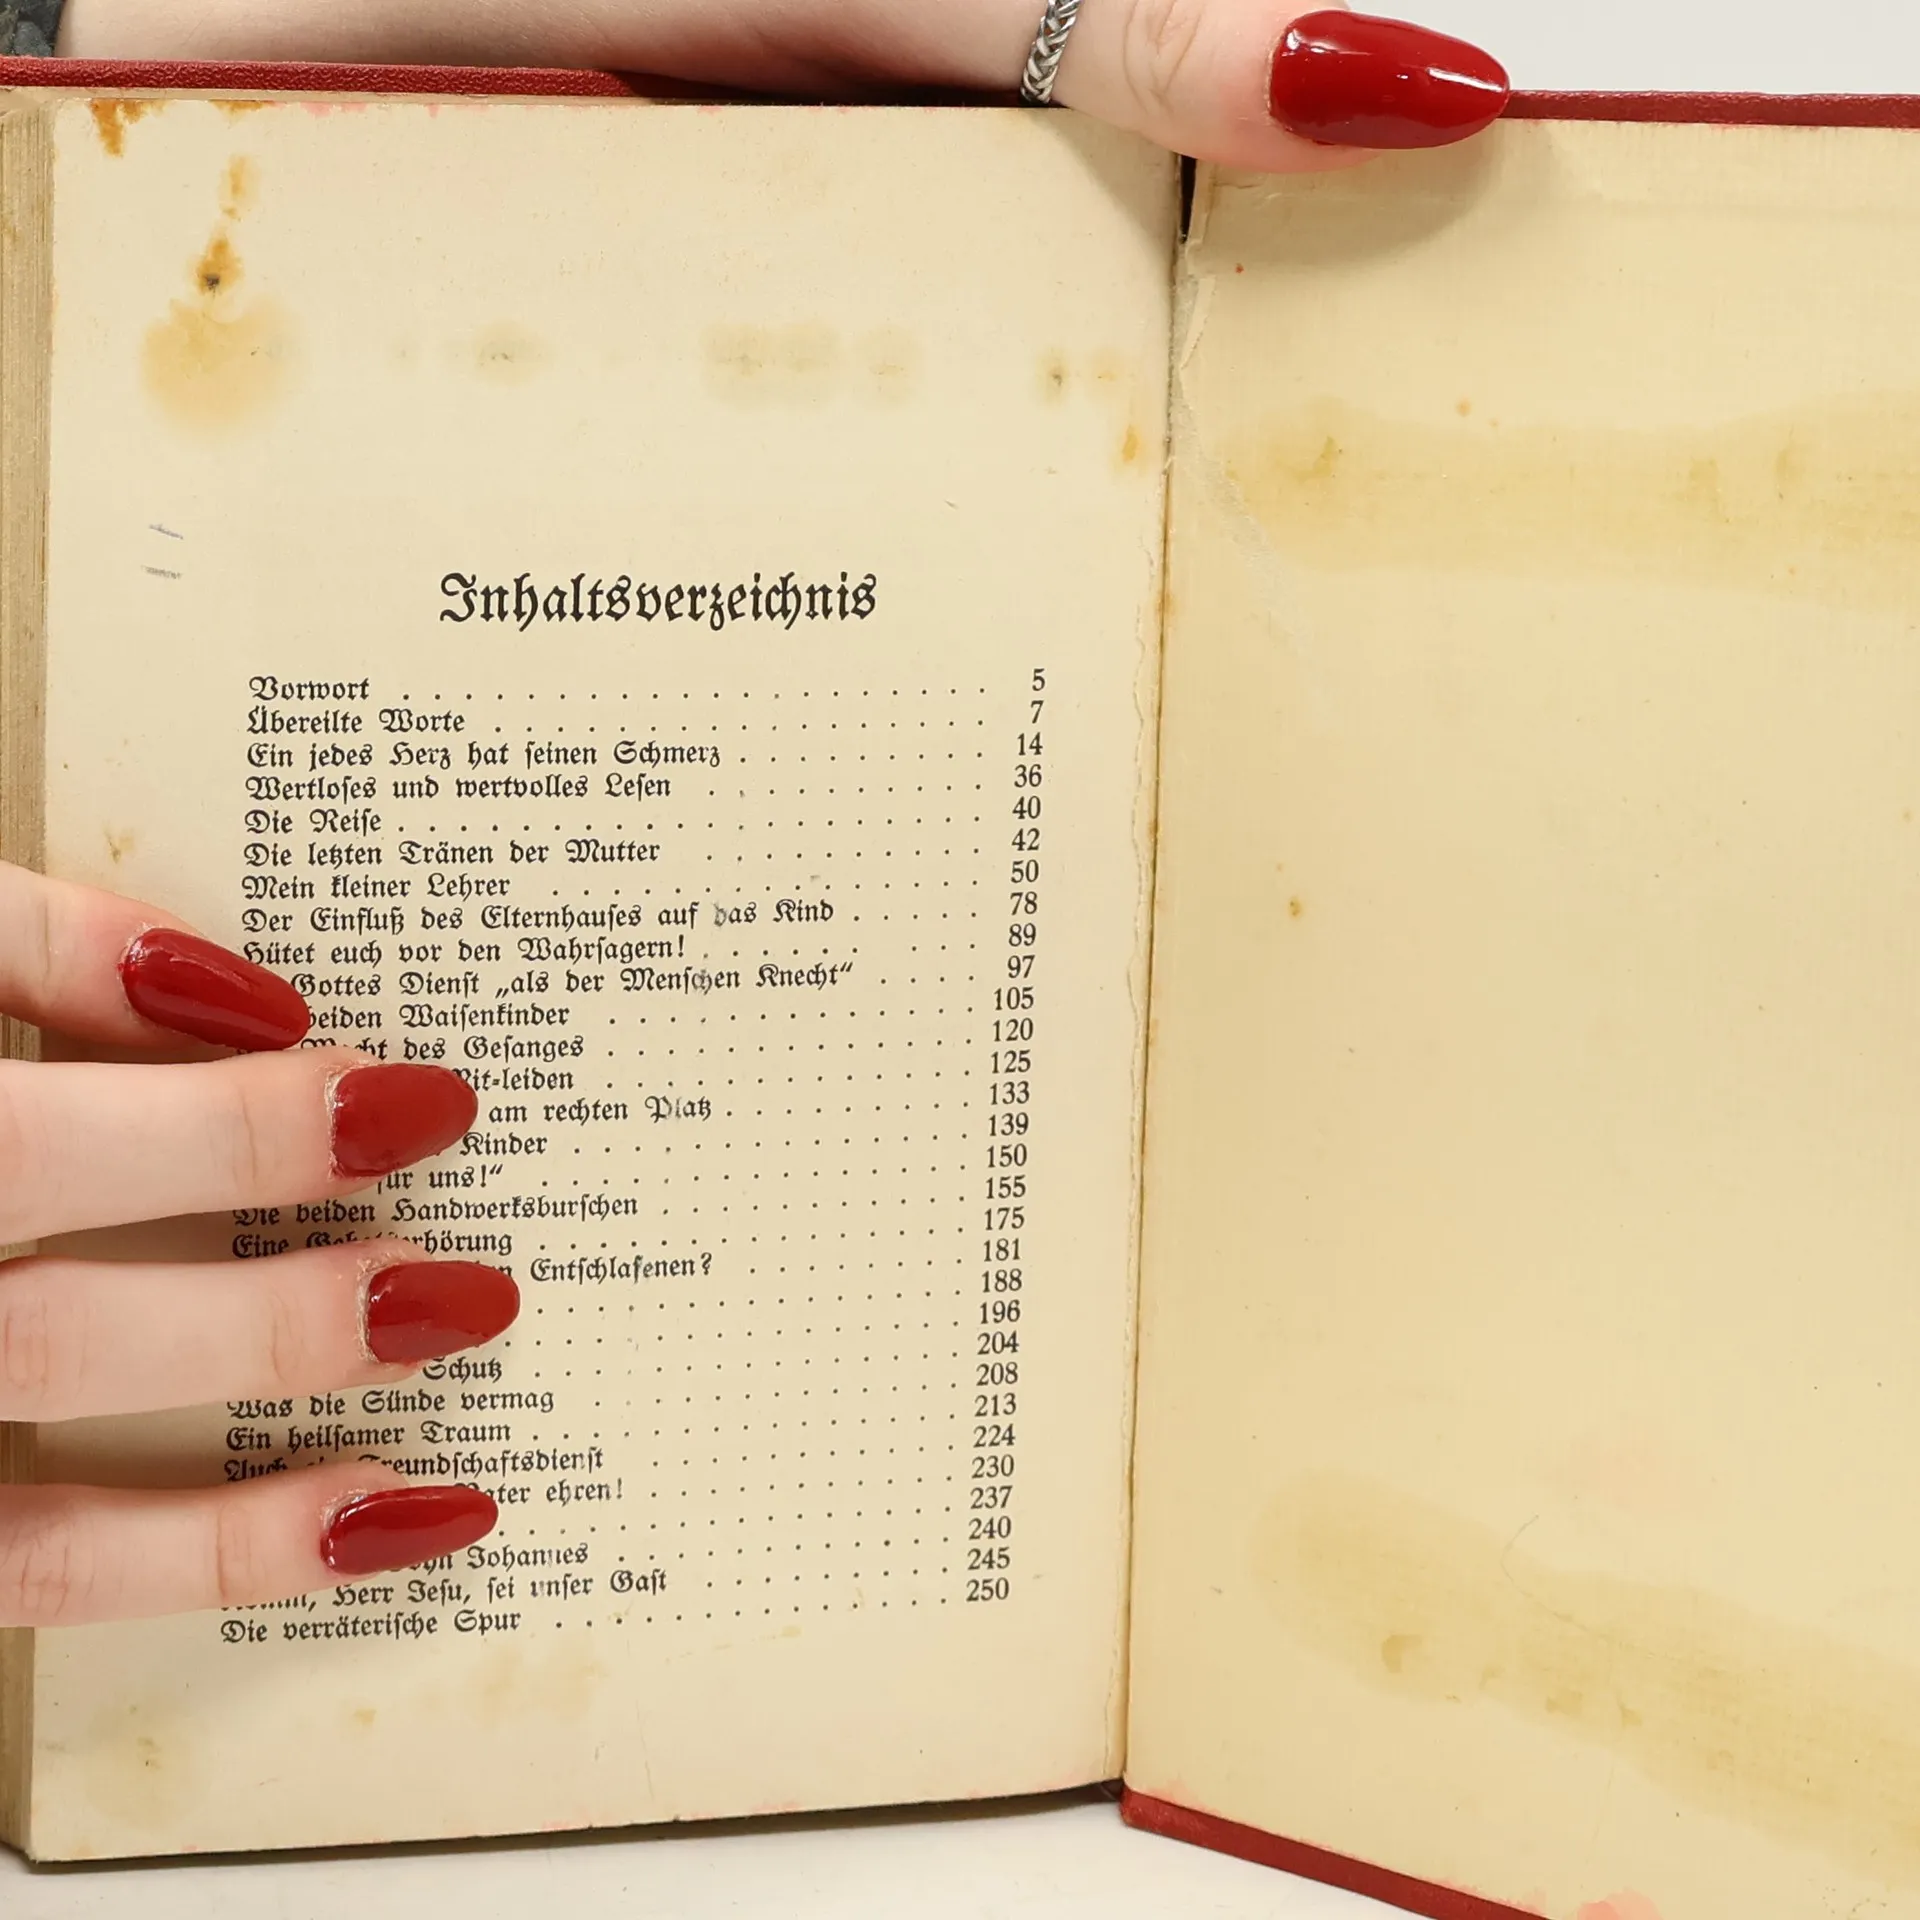 Inhaltsverzeichnis
Vorwort . . . . . . . . . . . . . . . . . . . 5
Übereilte Worte . . . . . . . . . . . . . . . . 7
Ein jedes Herz hat seinen Schmerz . . . . . . . . . 14
Wertloses und wertvolles Lesen . . . . . . . . . . 36
Die Reise . . . . . . . . . . . . . . . . . . . 40
Die letzten Tränen der Mutter . . . . . . . . . . 42
Mein kleiner Lehrer . . . . . . . . . . . . . . 50
Der Einfluß des Elternhauses auf das Kind . . . . . 78
Hütet euch vor den Wahrsagern! . . . . . . . . . 89
Gottes Dienst „als der Menschen Knecht“ . . . . 97
beiden Waisenkinder . . . . . . . . . . . . 105
des Gesanges . . . . . . . . . . . . 120
Mit-leiden . . . . . . . . . . . . 125
am rechten Platz . . . . . . . . . 133
Kinder . . . . . . . . . . . . . 139
für uns!“ . . . . . . . . . . . . . . 150
Die beiden Handwerksburschen . . . . . . . . . . 155
Eine . . . . . . . . . . . . . . 175
Entschlafenen? . . . . . . . . 181
. . . . . . . . . . . . . . 188
. . . . . . . . . . . . . . . 196
Schutz . . . . . . . . . . . . . . 204
Was die Sünde vermag . . . . . . . . . . . . 208
Ein heilsamer Traum . . . . . . . . . . . . . . 213
Auch Freundschaftsdienst . . . . . . . . . . 224
Vater ehren! . . . . . . . . . . 230
. . . . . . . . . . . . . . . 237
Johannes . . . . . . . . . . . 240
Komm, Herr Jesu, sei unser Gast . . . . . . . . . 245
Die verräterische Spur . . . . . . . . . . . . . 250